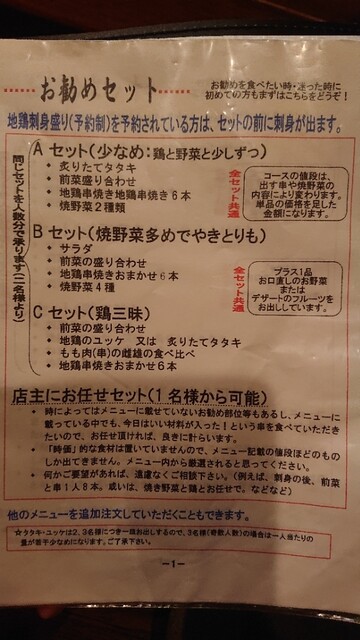 お勧めセット
お勧めを食べたい時・迷った時に
初めての方もまずはこちらをどうぞ！
地鶏刺身盛り(予約制)を予約されている方は、セットの前に刺身が出ます。
同じセットを人数分で承ります(二名様より)
A セット(少なめ：鶏と野菜と少しずつ)
・ 炙りたてタタキ
・ 前菜盛り合わせ
・ 地鶏串焼き地鶏串焼き６本
・ 焼野菜２種類
全セット共通
コースの値段は、
出す串や焼野菜の
内容により変わります。
単品の価格を足した
金額になります。
B セット(焼野菜多めでやきとりも)
・ サラダ
・ 前菜の盛り合わせ
・ 地鶏串焼きおまかせ６本
・ 焼野菜４種
全セット共通
プラス1品
お口直しのお野菜
または
デザートのフルーツを
お出ししています。
C セット(鶏三昧)
・ 前菜の盛り合わせ
・ 地鶏のユッケ　又は　炙りたてタタキ
・ もも肉(串)の雌雄の食べ比べ
・ 地鶏串焼きおまかせ６本
店主にお任せセット(１名様から可能)
・ 時によってはメニューに載せていないお勧め部位等もあるし、メニューに
載っている中でも、今日はいい材料が入った！という串を食べていただき
たいので、お任せ頂ければ、良きに計らいます。
・ 「時価」的な食材は置いていませんので、メニュー記載の値段ほどのもの
しか出てきません。メニュー内から厳選されると思ってください。
・ 何かご要望があれば、遠慮なくご相談下さい。(例えば、刺身の後、前菜
と串１人８本。或いは、焼き野菜と鶏とお任せで。などなど)
他のメニューを追加注文していただくこともできます。
☆タタキ・ユッケは2、3名様につき一皿お出しするので、3名様(奇数人数)の場合は一人当たりの
量が若干少なめになります。ご了承下さい。
－1－